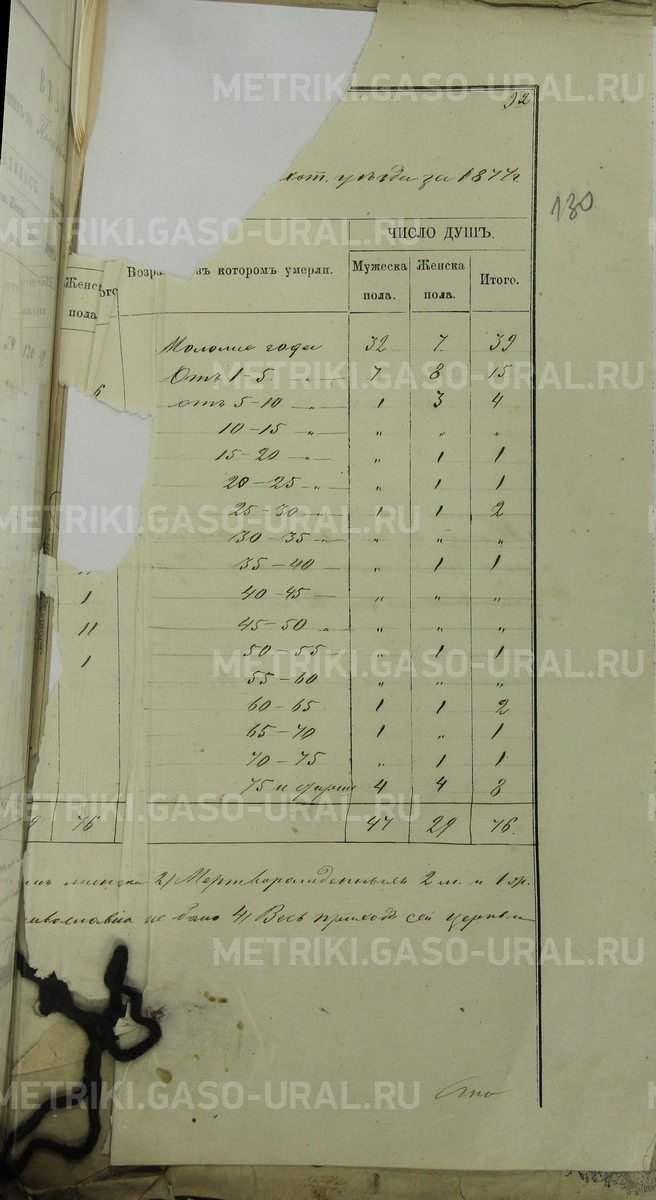 92
130
уѣзда за 1877г
ЧИСЛО ДУШЪ.
Возра въ которомъ умерли. Мужеска пола. Женска пола. Итого.
Женс пола ого
Моложе года 32 7 39
Отъ 1-5. „ 7 8 15
6 отъ 5-10 „ 1 3 4
10-15 „ „ „ „
15-20 „ „ 1 1
20-25 „ „ 1 1
25-30 „ 1 1 2
30-35 „ „ „ „
35-40 „ 1 1
1 40-45 „ „ „
11 45-50 „ „ „ „
1 50-55 „ 1 1
55-60 „ „ „
60-65 1 1 2
65-70 1 „ 1
70-75 „ 1 1
75 и 4 4 8
9 76 47 29 76.
2) Мертворожденныхъ 2 м. и 1 ж.
не было 4) Весь приходъ сей церкви
METRIKI.GASO-URAL.RU